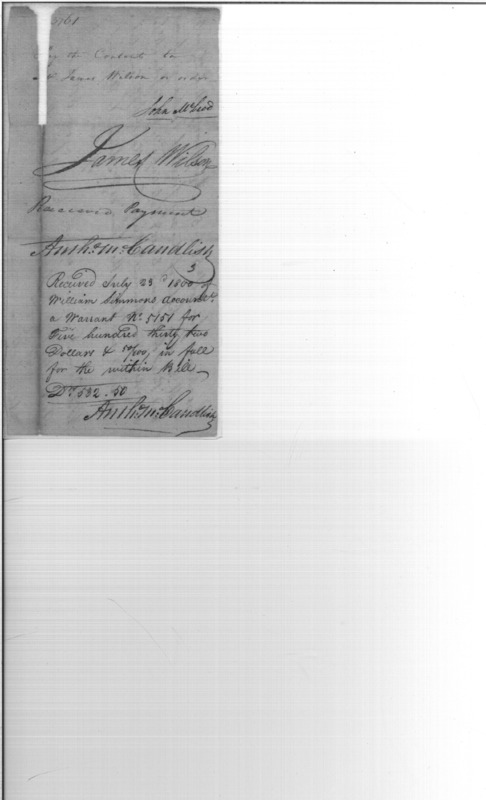 Pay the Contents to
Mr James Wilson or order
John McLeod
James Wilson
Received Payment
Anth. McCandlish
3
Received July 23d 1800 of
William Simmons Accountt
a Warrant No. 5151 for
Five hundred thirty two
Dollars & 50/100, in full
for the within Bill
Drs 532.50
Anth. McCandlish